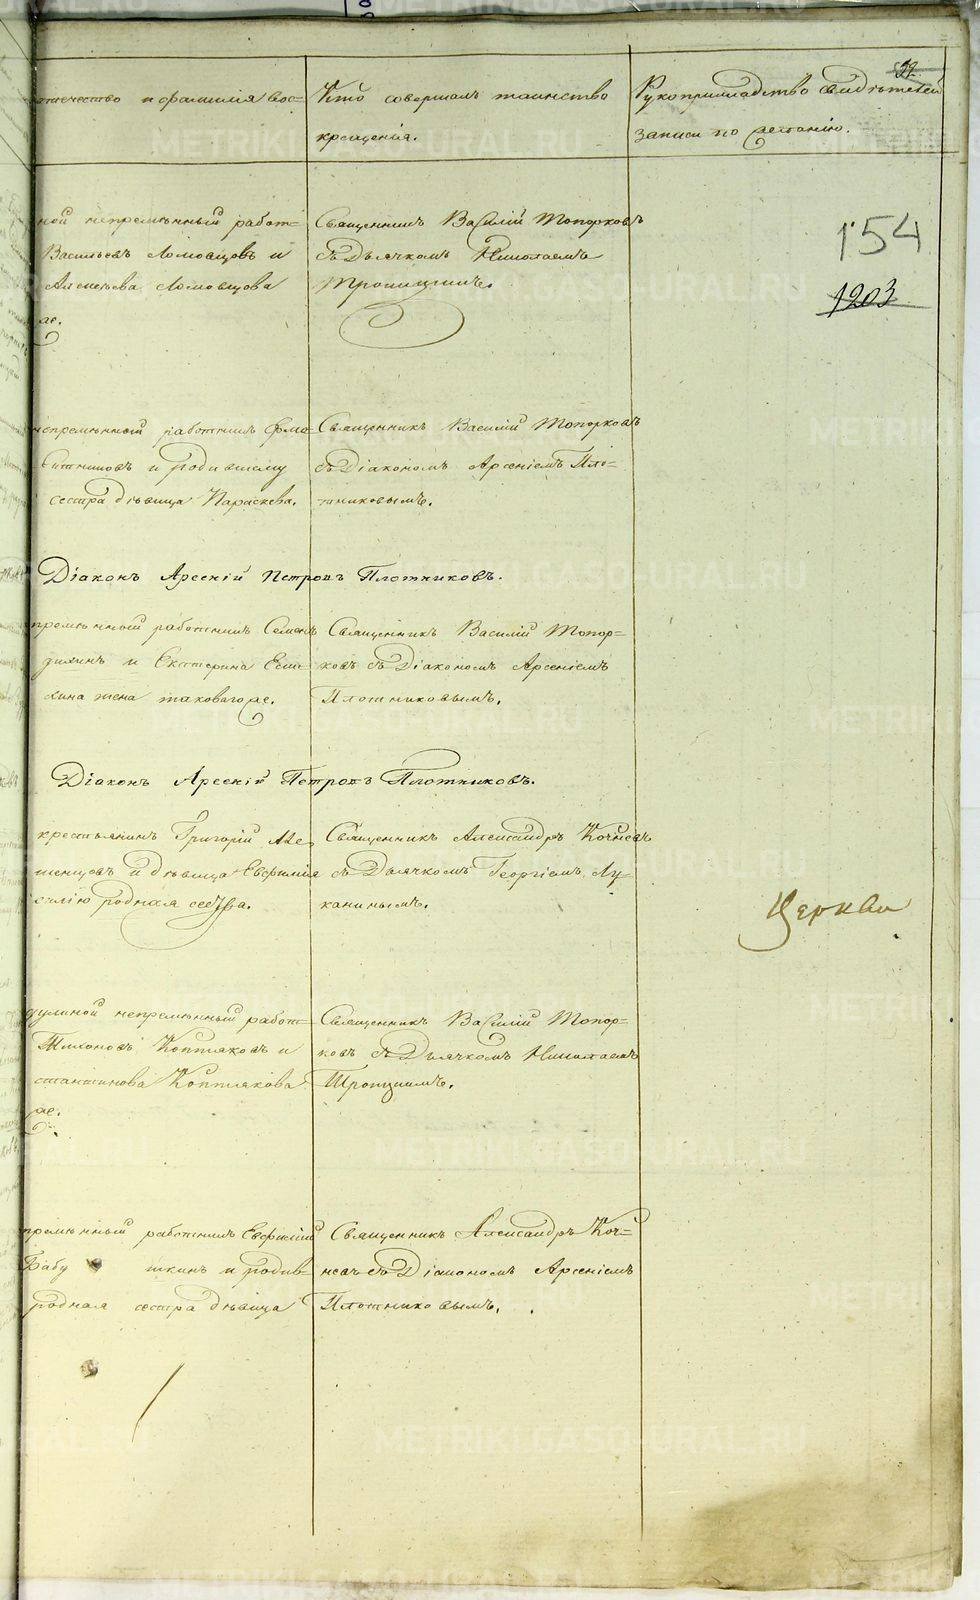 22.
отчечество и фамилія вос-
Кто совершалъ таинство
крещенія.
Рукоприкладство свидѣтелей
записи по желанію.
154
1203
ной непремѣнный работ-
Васильевъ Ломовцовъ и
Алексѣева Ломовцова
же.
Священникъ Василій Топорковъ
съ Дьячкомъ Николаемъ
Троицкимъ.
непремѣнный работникъ
и родившему
сестра дѣвица Параскева.
Священникъ Василій Топорковъ
съ Діакономъ Арсеніемъ Пло-
тниковымъ.
Діаконъ Арсеній Петровъ Плотниковъ.
премѣнный работникъ Семенъ
и Екатерина
жена таковагоже.
Священникъ Василій Топор-
ковъ съ Діакономъ Арсеніемъ
Плотниковымъ.
Діаконъ Арсеній Петровъ Плотниковъ.
крестьянинъ Григорій
и дѣвица Евфимія
родная сестра.
Священникъ Александръ Кочневъ
съ Дьячкомъ Георгіемъ Лу-
канинымъ.
Церкви
непремѣнный работ-
Тихоновъ Коптяковъ и
стантинова Коптякова
же.
Священникъ Василій Топор-
ковъ съ Дьячкомъ Николаемъ
Троицкимъ.
премѣнный работникъ Евфимій
Бабу шкинъ и родив-
родная сестра дѣвица
Священникъ Александръ Коч-
невъ съ Діакономъ Арсеніемъ
Плотниковымъ.
METRIKI.GASO-URAL.RU